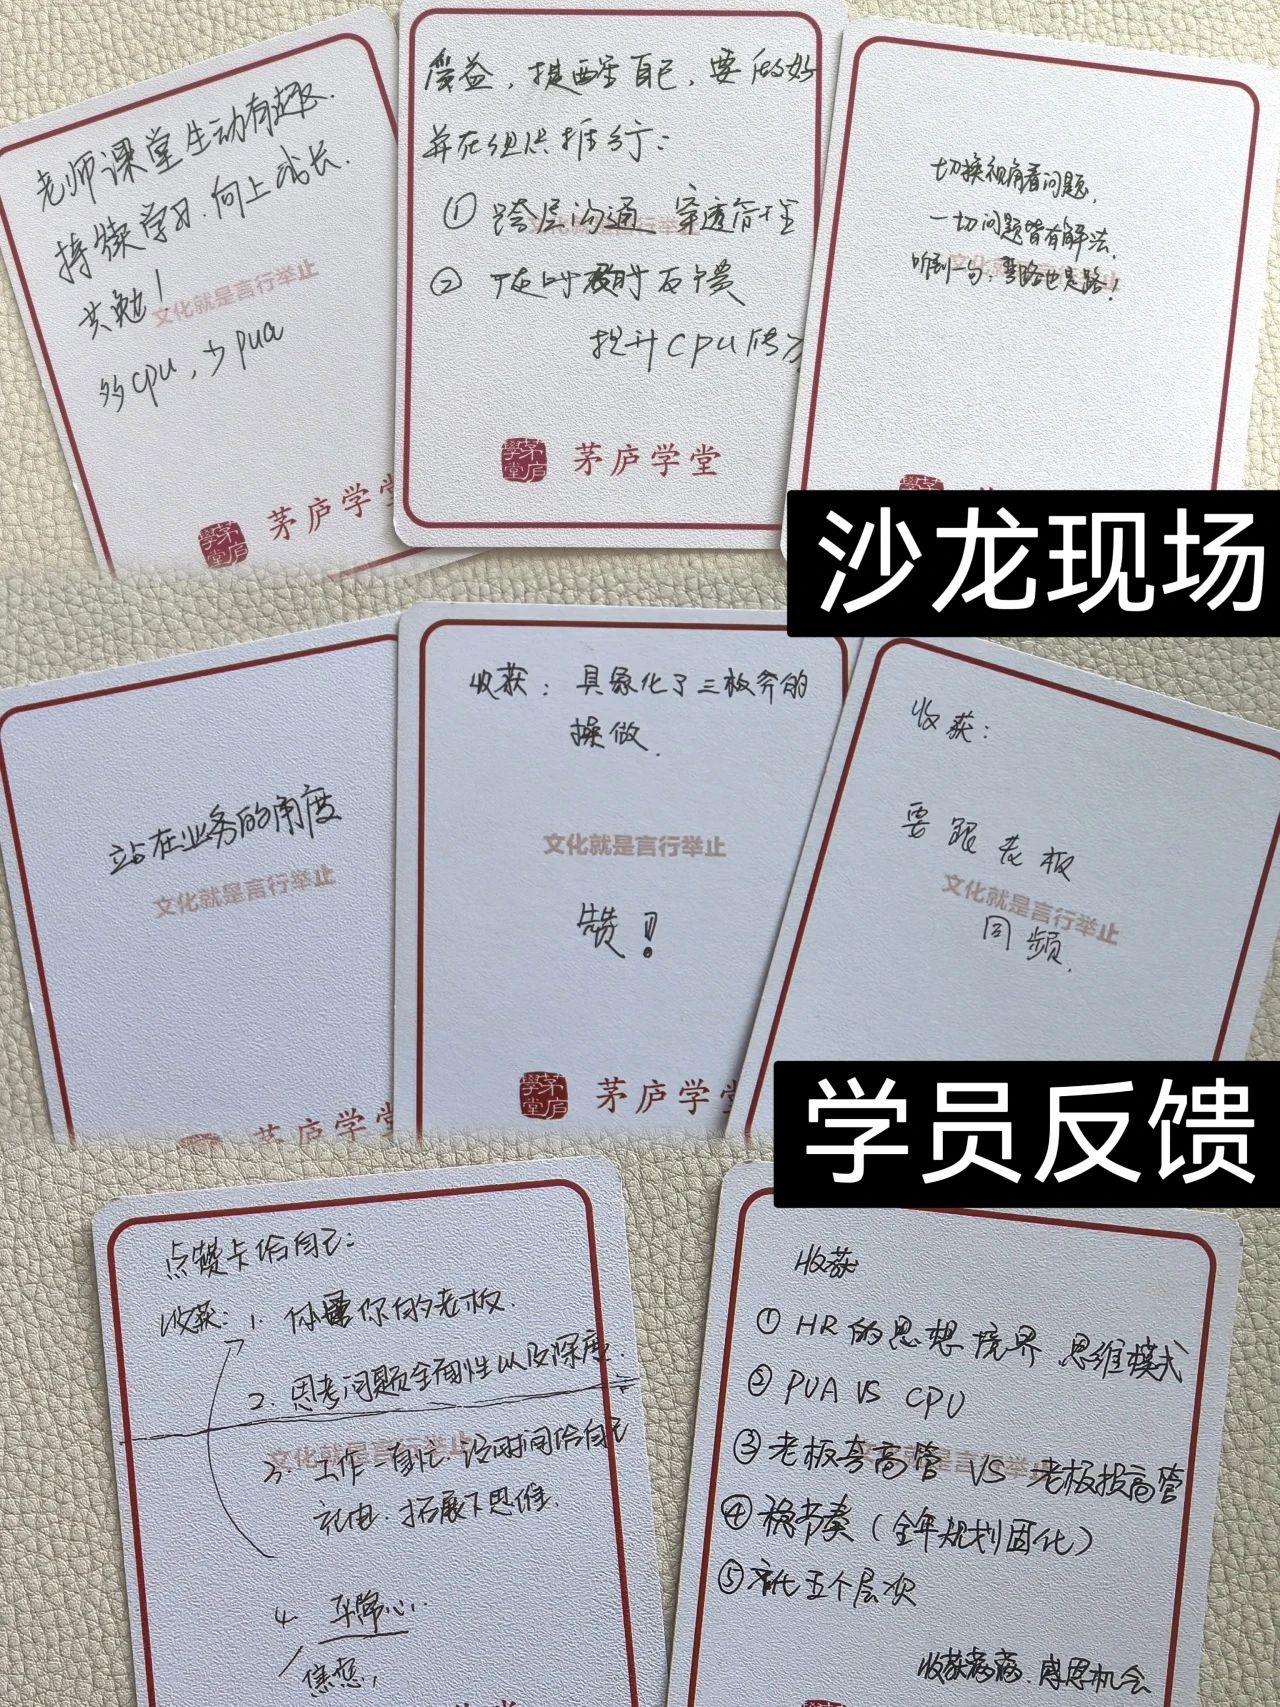 老师课堂生动有趣.
持续学习.向上成长.
共勉!
文化就是言行举止
多cpu,少pua
茅庐学
受益,提醒自己,要
并在组织推行:
① 跨层沟通 穿透管理
②
提升CPU
茅庐学堂
切换视角看问题,
一切问题皆有解法.
听到一句:弯路也是路!
沙龙现场
站在业务的角度
文化就是言行举止
茅庐学堂
收获:具象化了三板斧的
操做.
文化就是言行举止
赞!
茅庐学
收获:
要跟老板
文化就是言行举止
同频.
学员反馈
点赞卡给自己:
收获:1. 你是你的老板.
2. 思考问题全面性以及深度.
文化就是言行举止
3. 工作 没时间给自己
充电.拓展下思维.
4. 平常心.
焦虑,
收获
① HR的思想境界 思维模式
② PUA VS CPU
③ 老板夸高管 VS 老板投高管
④ 稳节奏(全年规划固化)
⑤ 五个层次
收获满满.感恩机会